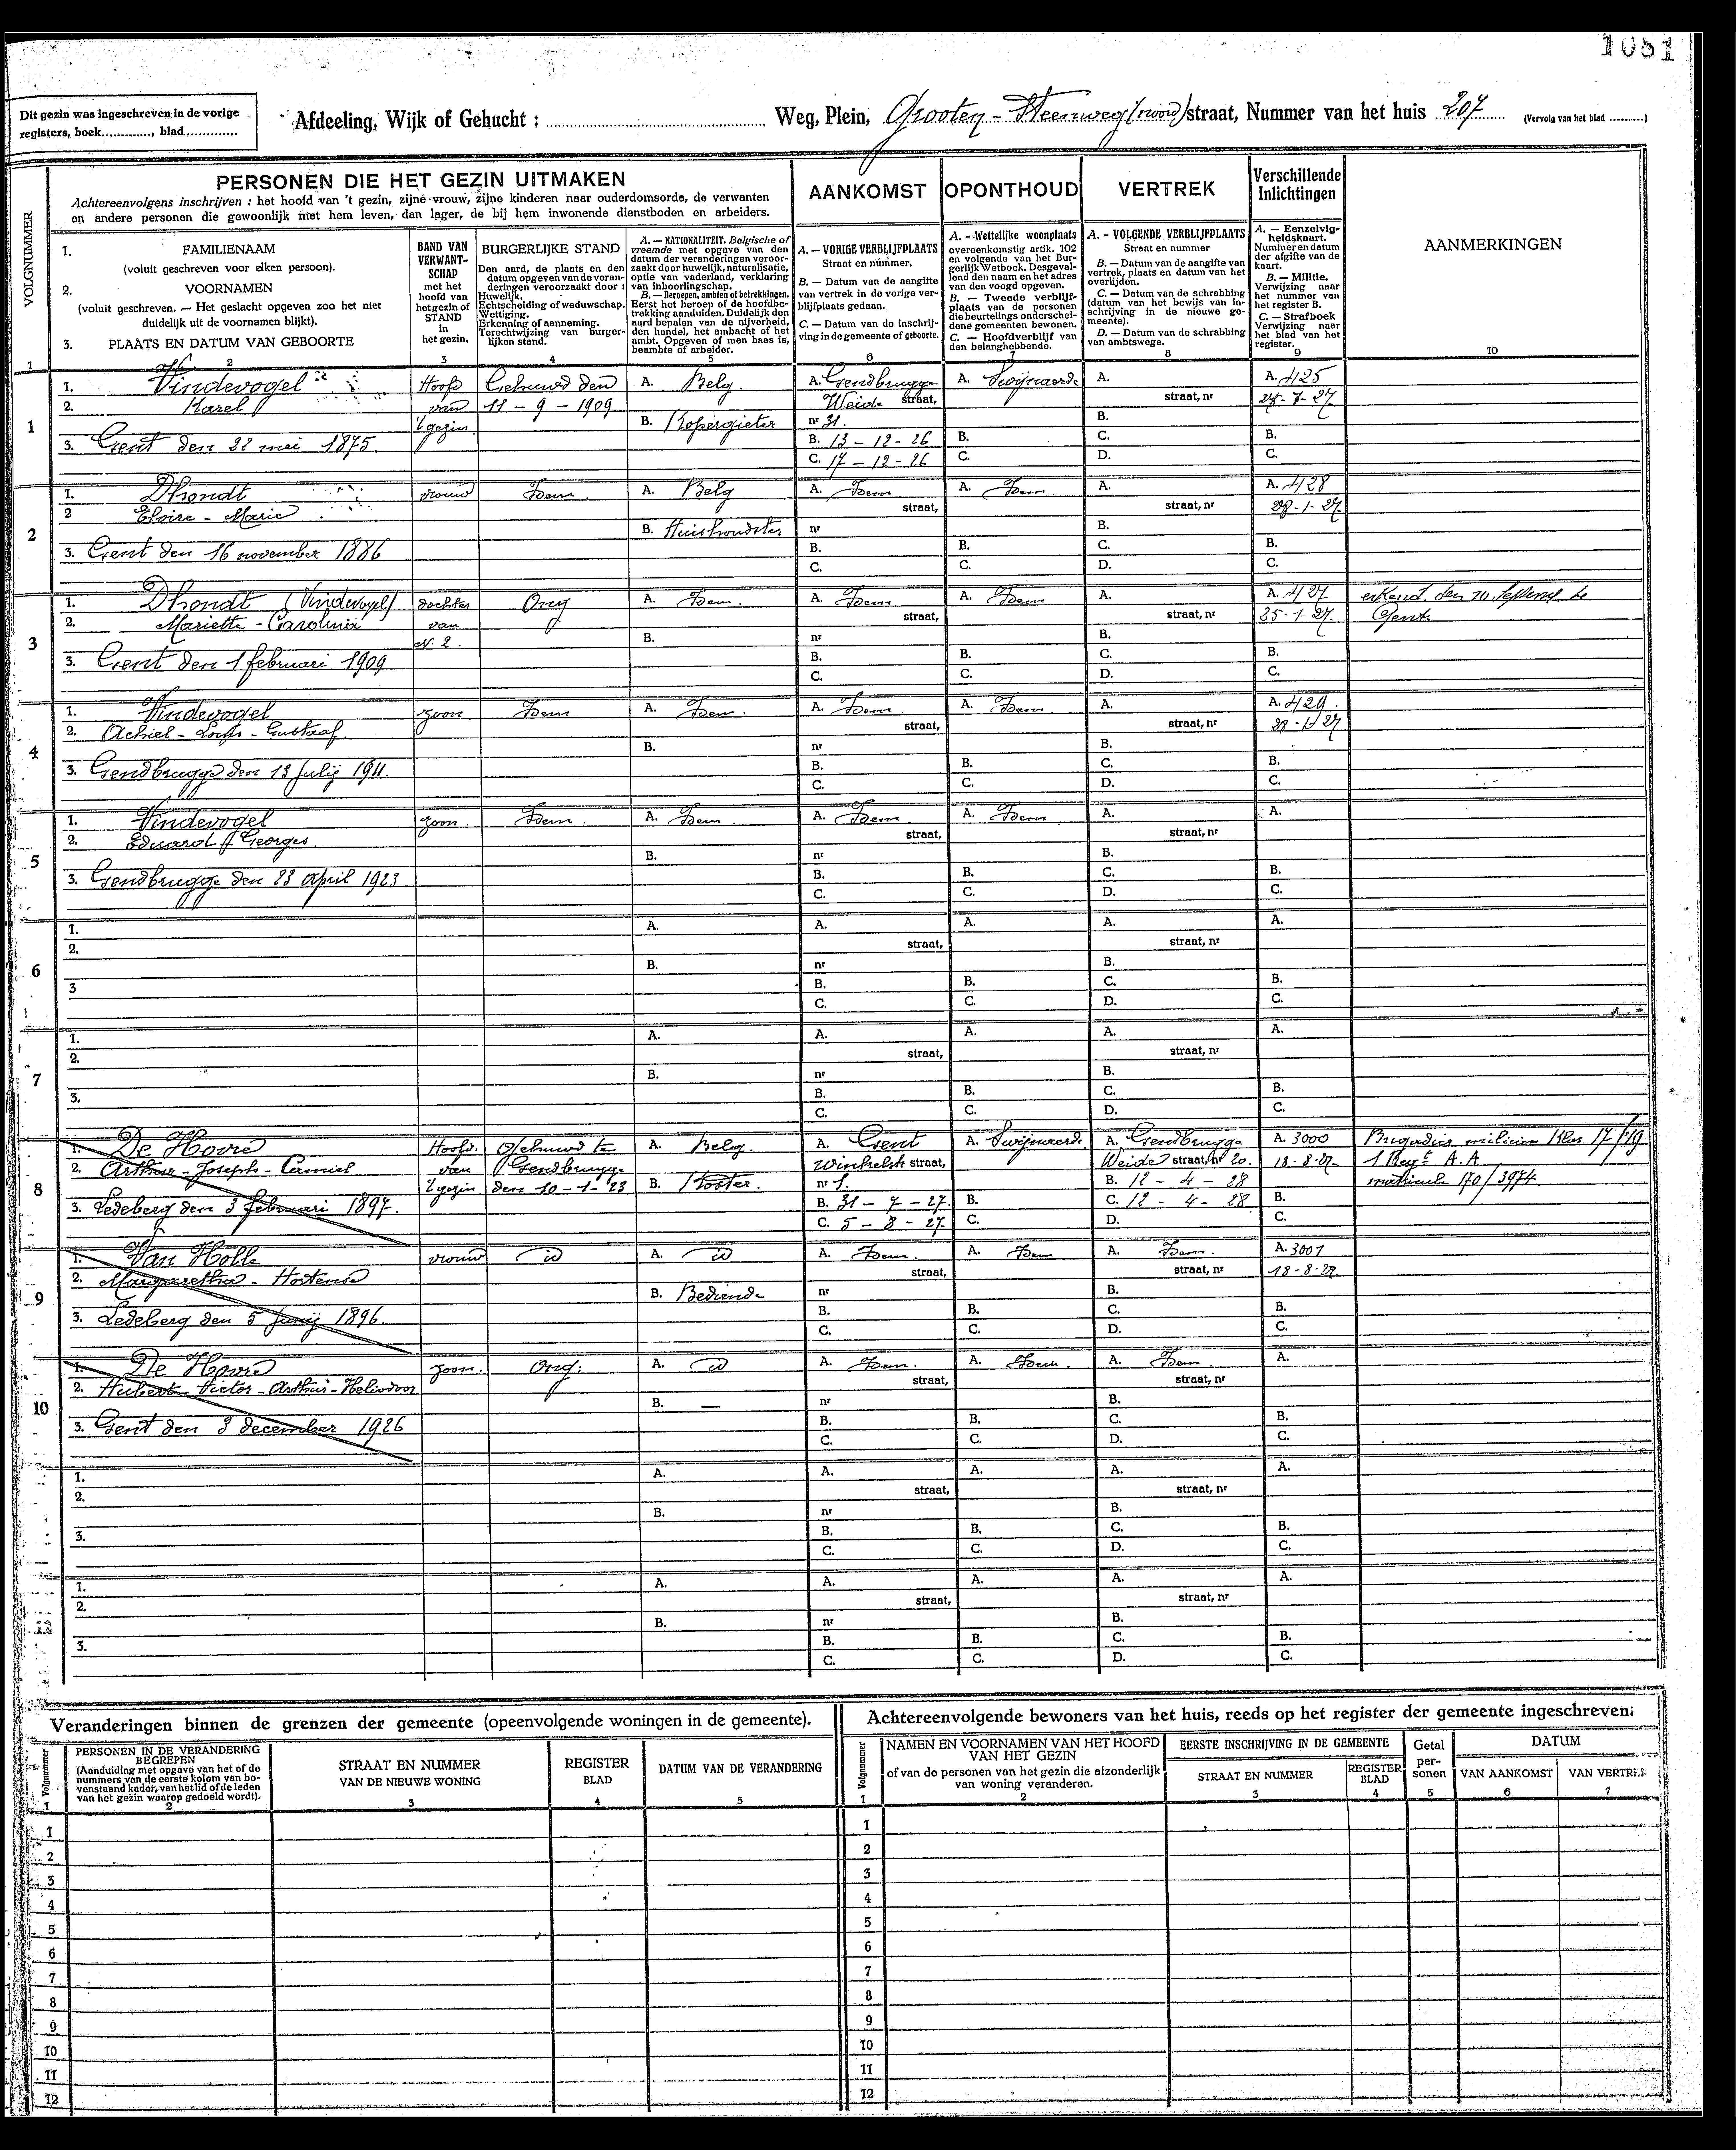 1051
Dit gezin was ingeschreven in de vorige
registers, boek............, blad.............
Afdeeling, Wijk of Gehucht : ........................ Weg, Plein, Grooten - Steenweg (noord) straat, Nummer van het huis 207 (Vervolg van het blad ..........)
VOLGNUMMER
PERSONEN DIE HET GEZIN UITMAKEN
Achtereenvolgens inschrijven : het hoofd van 't gezin, zijne vrouw, zijne kinderen naar ouderdomsorde, de verwanten
en andere personen die gewoonlijk met hem leven, dan lager, de bij hem inwonende dienstboden en arbeiders.
1. FAMILIENAAM
(voluit geschreven voor elken persoon).
2. VOORNAMEN
(voluit geschreven. — Het geslacht opgeven zoo het niet
duidelijk uit de voornamen blijkt).
3. PLAATS EN DATUM VAN GEBOORTE
BAND VAN
VERWANT-
SCHAP
met het
hoofd van
het gezin of
STAND
in
het gezin.
BURGERLIJKE STAND
Den aard, de plaats en den
datum opgeven van de veran-
deringen veroorzaakt door :
Huwelijk.
Echtscheiding of weduwschap.
Wettiging.
Erkenning of aanneming.
Terechtwijzing van burger-
lijken stand.
A. — NATIONALITEIT. Belgische of
vreemde met opgave van den
datum der veranderingen veroor-
zaakt door huwelijk, naturalisatie,
optie van vaderland, verklaring
van inboorlingschap.
B. — Beroepen, ambten of betrekkingen.
Eerst het beroep of de hoofdbe-
trekking aanduiden. Duidelijk den
aard bepalen van de nijverheid,
den handel, het ambacht of het
ambt. Opgeven of men baas is,
beambte of arbeider.
AANKOMST
A. — VORIGE VERBLIJFPLAATS
Straat en nummer.
B. — Datum van de aangifte
van vertrek in de vorige ver-
blijfplaats gedaan.
C. — Datum van de inschrij-
ving in de gemeente of geboorte.
OPONTHOUD
A. - Wettelijke woonplaats
overeenkomstig artik. 102
en volgende van het Bur-
gerlijk Wetboek. Desgeval-
lend den naam en het adres
van den voogd opgeven.
B. — Tweede verblijf-
plaats van de personen
die beurtelings onderschei-
dene gemeenten bewonen.
C. — Hoofdverblijf van
den belanghebbende.
VERTREK
A. - VOLGENDE VERBLIJFPLAATS
Straat en nummer
B. — Datum van de aangifte van
vertrek, plaats en datum van het
overlijden.
C. — Datum van de schrabbing
(datum van het bewijs van in-
schrijving in de nieuwe ge-
meente).
D. — Datum van de schrabbing
van ambtswege.
Verschillende
Inlichtingen
A. — Eenzelvig-
heidskaart.
Nummer en datum
der afgifte van de
kaart.
B. — Militie.
Verwijzing naar
het nummer van
het register B.
C. — Strafboek
Verwijzing naar
het blad van het
register.
AANMERKINGEN
1 2 3 4 5 6 7 8 9 10
1
1. Vindevogel Hoofd Gehuwd den A. Belg A. Gendbrugge A. Swijnaerde A. A. 425
2. Karel van 11 - 9 - 1909 Weide straat, straat, nr
't gezin B. Kopergieter nr 31. B.
3. Gent den 22 mei 1875. B. 13 - 12 - 26 B. C. B.
C. 17 - 12 - 26 C. D. C.
2
1. Dhondt vrouw Idem. A. Belg A. Idem A. Idem A. A. 428
2 Eloise - Marie straat, straat, nr 28-1-27.
B. Huishoudster nr B.
3. Gent den 16 november 1886 B. B. C. B.
C. C. D. C.
3
1. Dhondt (Vindevogel) dochter Ong A. Idem. A. Idem A. Idem A. A. 427 erkend den
2. Mariette - Carolina van straat, straat, nr 25-1-27. Gent
N. 2. B. nr B.
3. Gent den 1 februari 1909 B. B. C. B.
C. C. D. C.
4
1. Vindevogel zoon Idem A. Idem. A. Idem A. Idem A. A. 429.
2. Achiel - Louis - Gustaaf. straat, straat, nr 28-1-27
B. nr B.
3. Gendbrugge den 13 Julij 1911. B. B. C. B.
C. C. D. C.
5
1. Vindevogel zoon. Idem. A. Idem. A. Idem A. Idem A. A.
2. Eduard Georges. straat, straat, nr
B. nr B.
3. Gendbrugge den 23 April 1923 B. B. C. B.
C. C. D. C.
6
1. A. A. A. A. A.
2. straat, straat, nr
B. nr B.
3 B. B. C. B.
C. C. D. C.
7
1. A. A. A. A. A.
2. straat, straat, nr
B. nr B.
3. B. B. C. B.
C. C. D. C.
8
1. De Hovre Hoofd. Gehuwd te A. Belg. A. Gent A. Swijnaerde A. Gendbrugge A. 3000 Brigadier milicien klas 17/19
2. Arthur - Joseph - Camiel van Gendbrugge Winkelstr straat, Weide straat, nr 20. 18-8-27 1 Regt A.A
't gezin den 10-1-23 B. Koster. nr 1. B. 12 - 4 - 28 matricule 170/3974
3. Ledeberg den 3 februari 1897. B. 31 - 7 - 27. B. C. 12 - 4 - 28 B.
C. 5 - 8 - 27 C. D. C.
9
1. Van Holle vrouw id A. id A. Idem. A. Idem A. Idem. A. 3001
2. Margaretha - Hortense straat, straat, nr 18-8-27.
B. Bediende nr B.
3. Ledeberg den 5 Junij 1896. B. B. C. B.
C. C. D. C.
10
1. De Hovre zoon. Ong. A. id A. Idem. A. Idem. A. Idem. A.
2. Hubert Victor - Arthur - Heliodoor straat, straat, nr
B. — nr B.
3. Gent den 3 december 1926 B. B. C. B.
C. C. D. C.
1. A. A. A. A. A.
2. straat, straat, nr
B. nr B.
3. B. B. C. B.
C. C. D. C.
12
1. A. A. A. A. A.
2. straat, straat, nr
B. nr B.
3. B. B. C. B.
C. C. D. C.
Veranderingen binnen de grenzen der gemeente (opeenvolgende woningen in de gemeente).
Volgnummer
PERSONEN IN DE VERANDERING
BEGREPEN
(Aanduiding met opgave van het of de
nummers van de eerste kolom van bo-
venstaand kader, van het lid of de leden
van het gezin waarop gedoeld wordt).
STRAAT EN NUMMER
VAN DE NIEUWE WONING
REGISTER
BLAD
DATUM VAN DE VERANDERING
1 2 3 4 5
1
2
3
4
5
6
7
8
9
10
11
12
Achtereenvolgende bewoners van het huis, reeds op het register der gemeente ingeschreven.
Volgnummer
NAMEN EN VOORNAMEN VAN HET HOOFD
VAN HET GEZIN
of van de personen van het gezin die afzonderlijk
van woning veranderen.
EERSTE INSCHRIJVING IN DE GEMEENTE
STRAAT EN NUMMER
REGISTER
BLAD
Getal
per-
sonen
DATUM
VAN AANKOMST
VAN VERTREK
1 2 3 4 5 6 7
1
2
3
4
5
6
7
8
9
10
11
12